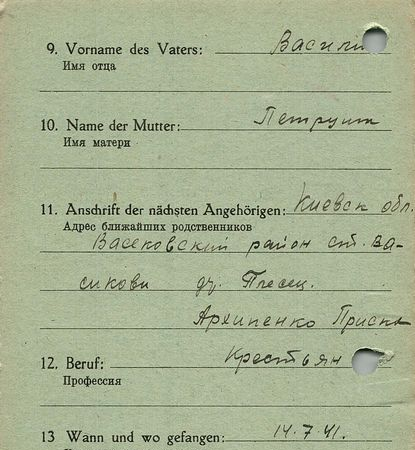 9. Vorname des Vaters: Васили
Имя отца
10. Name der Mutter:
Имя матери
11. Anschrift der nächsten Angehörigen: Киевск обл.
Адрес ближайших родственников
Васековский район ст. Ва-
сикови д. Плесец.
Архипенко Приска
12. Beruf: Крестьян
Профессия
13 Wann und wo gefangen: 14.7.41.